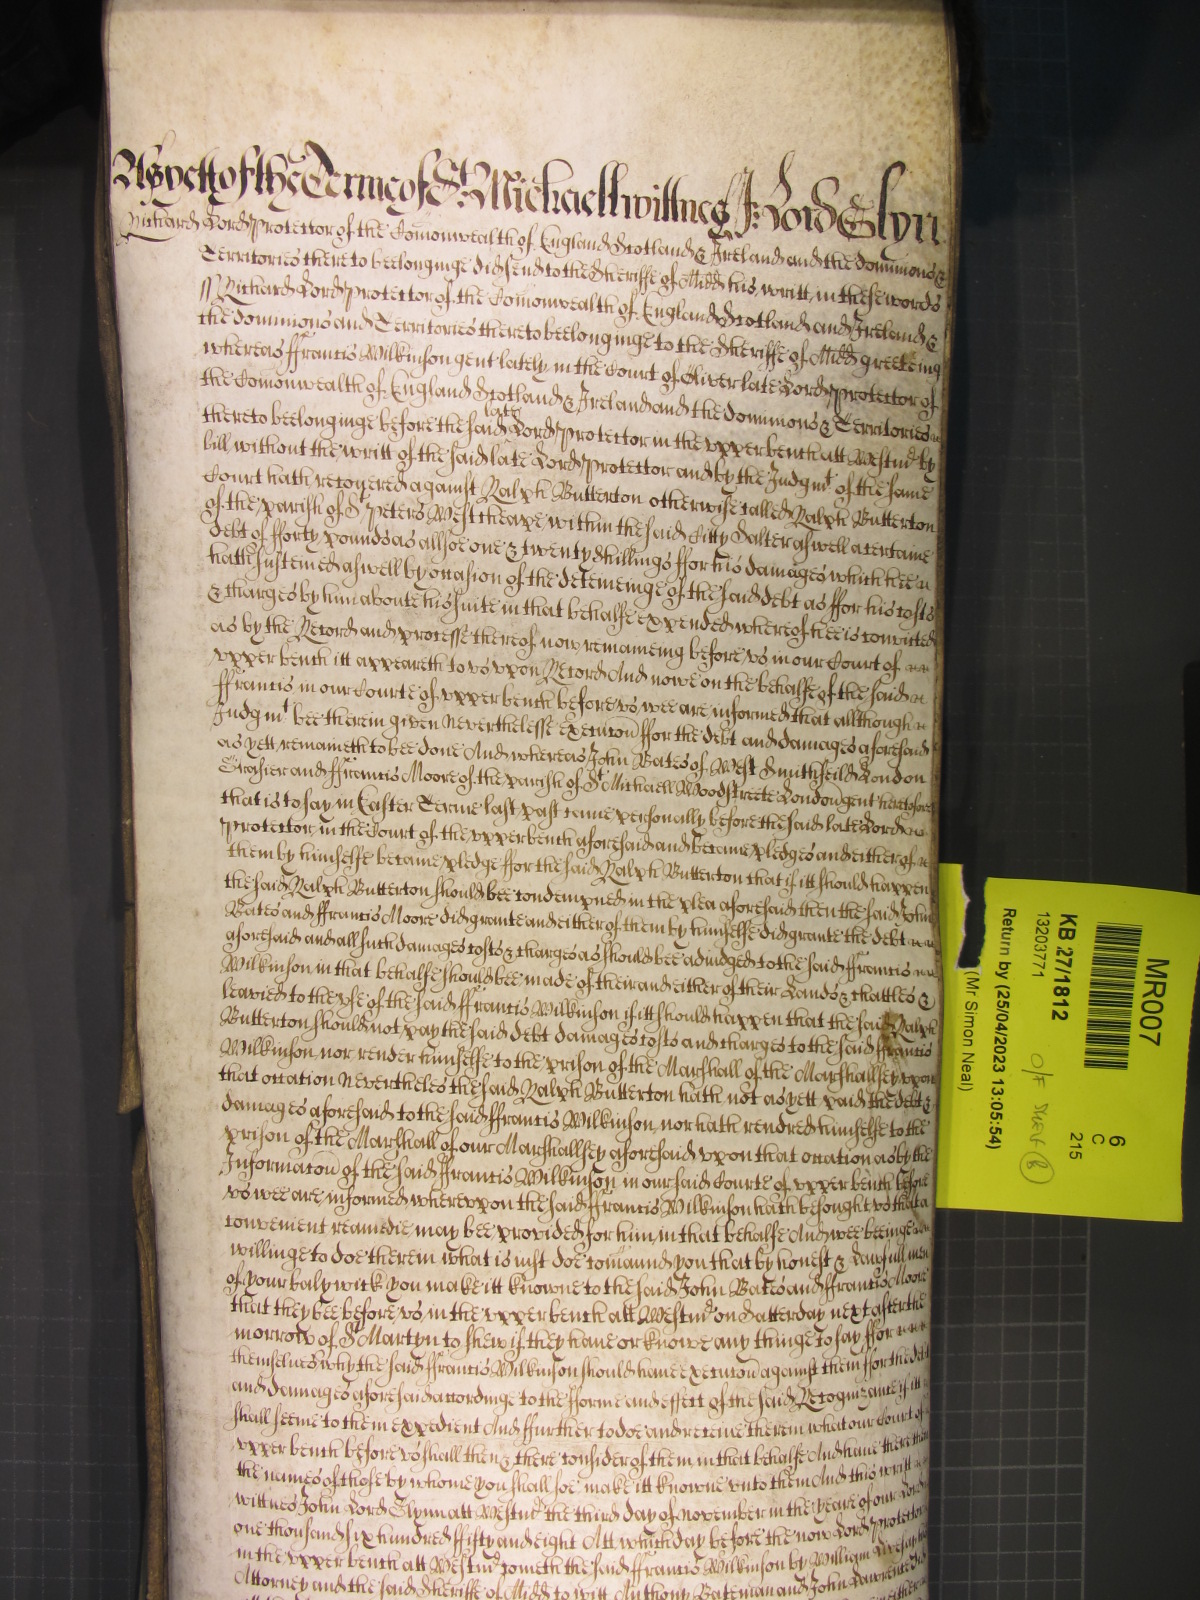 As yett of the Terme of St Michaell wittnes J: Lord Glyn
Richard Lord Protector of the Comonwealth of England Scotland & Ireland and the dominions &
Territories thereto beelonginge did send to the Sheriffe of Midd his writt in these words
ss Richard Lord Protector of the Comonwealth of England Scotland and Ireland &
the dominions and Territories thereto beelonginge to the Sheriffe of Midd greeteing
whereas ffrancis Wilkinson gent lately in the Court of Oliver late Lord Protector of
the Comonwealth of England Scotland & Ireland and the dominions & Territories
thereto beelonginge before the said late Lord Protector in the upper bench att Westmr by
bill without the writt of the said late Lord Protector and by the Judgmt of the same
Court hath recovered against Ralph Butterton otherwise called Ralph Butterton
of the parish of St Peters Westcheape within the said Citty Salter aswell a certaine
debt of fforty pounds as allsoe one & twenty shillings ffor his damages which hee
hath susteined aswell by occasion of the deteineinge of the said debt as ffor his costs
& charges by him aboute his suite in that behalfe expended whereof hee is convicted
as by the Record and processe thereof now remaineing before vs in our Court of
vpper bench itt appeareth to vs vpon Record And nowe on the behalfe of the said
ffrancis in our Courte of vpper bench before vs wee are informed that allthough
Judgmt bee therein given Neverthelesse Execucon ffor the debt and damages aforesaid
as yett remaineth to bee done And whereas John Bates of West Smithfeild London
Grasier and ffrancis Moore of the parish of St Michaell Woodstreete London gent heretofore
that is to say in Easter Terme last past came personally before the said late Lord
Protector in the Court of the vpper bench aforesaid and became pledges and either of
them by himselfe became pledge ffor the said Ralph Butterton that if itt should happen
the said Ralph Butterton should bee condempned in the plea aforesaid then the said John
Bates and ffrancis Moore did grante and either of them by himselfe did grante the debt
aforesaid and all such damages costs & charges as should bee adiudged to the said ffrancis
Wilkinson in that behalfe should bee made of their and either of their Lands & chattles &
leavied to the vse of the said ffrancis Wilkinson if itt should happen that the said Ralph
Butterton should not pay the said debt damages costs and charges to the said ffrancis
Wilkinson nor render himselfe to the prison of the Marshall of the Marshallsey vpon
that occation Nevertheles the said Ralph Butterton hath not as yett paid the debt &
damages aforesaid to the said ffrancis Wilkinson nor hath rendred himselfe to the
prison of the Marshall of our Marshallsey aforesaid vpon that occation as by the
Informacon of the said ffrancis Wilkinson in our said Courte of vpper bench before
vs wee are informed wherevpon the said ffrancis Wilkinson hath besought vs that a
convenient reamedie may bee provided for him in that behalfe And wee beeinge
willinge to doe therein what is iust doe comaund you that by honest & Lawfull men
of your balywick you make itt knowne to the said John Bates and ffrancis Moore
that they bee before vs in the vpper bench att Westmr on Satterday next after the
morrow of St Martyn to shew if they haue or knowe any thinge to say ffor
themselues why the said ffrancis Wilkinson should haue execucon against them ffor the debt
and damages aforesaid accordinge to the fforme and effect of the said Recognizance if itt
shall seeme to them expedient And ffurther to doe and receiue therein what our Court of
vpper bench before vs shall then & there consider of them in that behalfe And haue there then
the names of those by whome you shall soe make itt knowne vnto them And this writt
wittnes John Lord Glynn att Westmr the third day of November in the yeare of our Lord
one thousand six hundred ffifty and eight Att which day before the now Lord Protector
in the vpper bench att Westmr cometh the said ffrancis Wilkinson by William
Attorney and the said Sheriffe of Midd to witt Anthony Bateman and John Lawrence did
MR007
6
C
215
KB 27/1812
13203771
O/F Shelf B
Return by (25/04/2023 13:05:54)
(Mr Simon Neal)